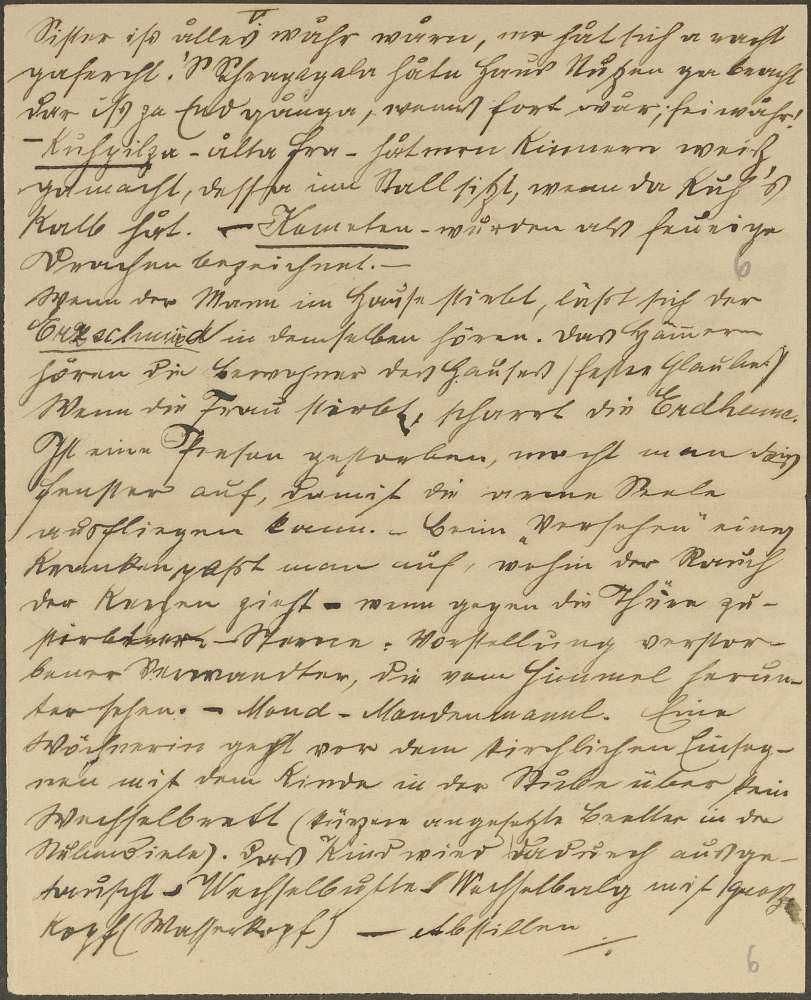 V
Sister iß ålles wåhr wårn, mr håt sich a racht
gfercht. 'S Schragagala håtn Haus Nutzen gebracht
dar iß za End gånga, wenns fort wår, sei wåhr!
- Kuhpilza - ålta Fra - håt mrn Kinnern weiß
gamacht, dessa im Stall sitzt, wenn da Kuh 's
Kalb håt. - Kometen - wurden als feurige
Drachen bezeichnet. -
Wenn der Mann im Hause stirbt, läßt sich der
Erdschmied in demselben hören. Das Hämmern
hören die Bewohner des Hauses (fester Glaube!)
Wenn die Frau stirbt, scharrt die Erdhenne.
Ist eine Person gestorben, macht man das
Fenster auf, damit die arme Seele
ausfliegen kann. - Beim "Versehen" eines
Kranken paßt man auf, wohin der Rauch
der Kerzen zieht - wenn gegen die Thüre zu -
stirbt er. - Sterne: Vorstellung verstor-
bener Verwandter, die vom Himmel herun-
ter sehen. - Mond - Mondenmannl. Eine
Wöchnerin geht vor dem kirchlichen Einseg-
nen mit dem Kinde in der Stube über kein
Wechselbrett (kürzere angesetzte Bretter in der
Stubendiele). Das Kind wird dadurch ausge-
tauscht - Wechselbutte (Wechselbalg mit groß.
Kopf (Wasserkopf) - Abstillen
6
6